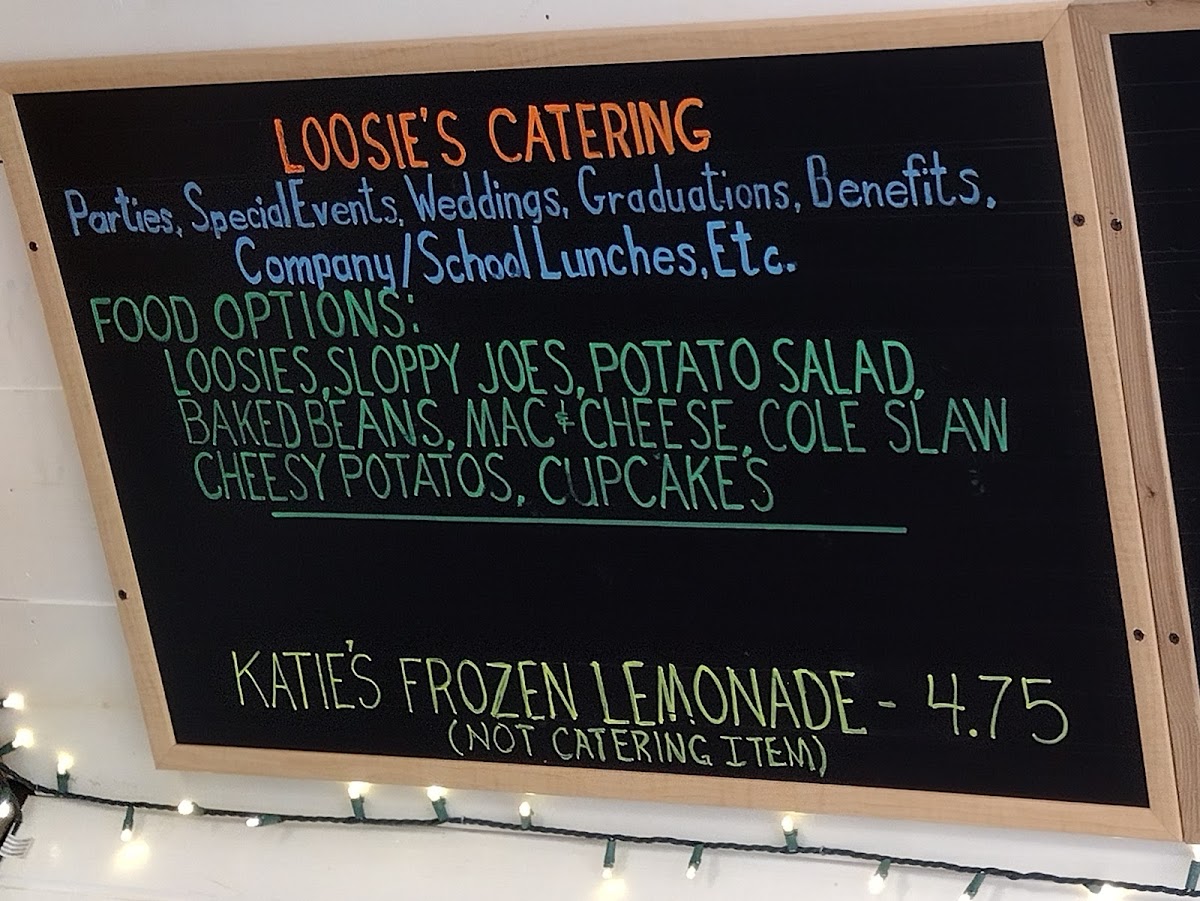 LOOSIE'S CATERING
Parties, Special Events, Weddings, Graduations, Benefits,
Company/School Lunches, Etc.
FOOD OPTIONS:
LOOSIES, SLOPPY JOES, POTATO SALAD,
BAKED BEANS, MAC & CHEESE, COLE SLAW
CHEESY POTATOS, CUPCAKE'S
KATIE'S FROZEN LEMONADE - 4.75
(NOT CATERING ITEM)